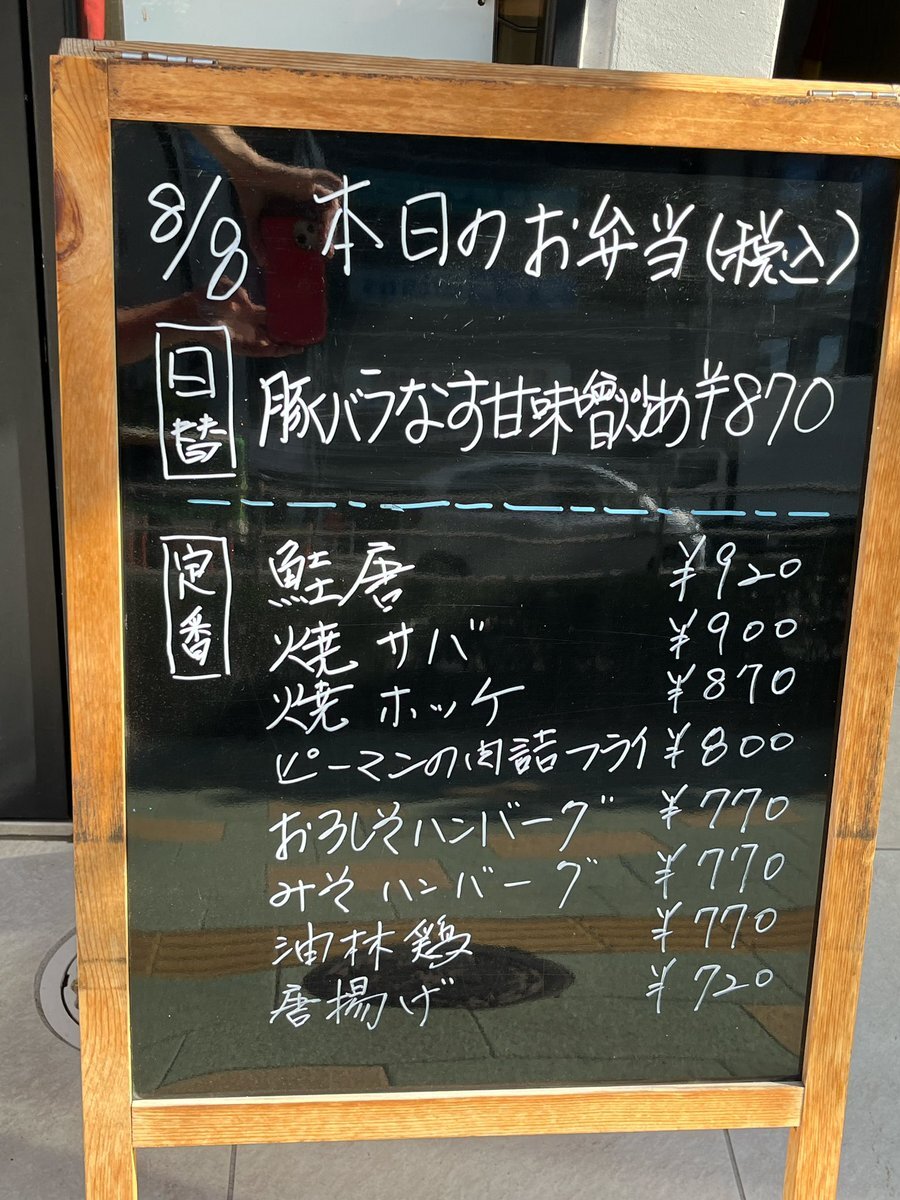 8/8 本日のお弁当(税込)
日替
豚バラなす甘味噌炒め ¥870
定番
鮭唐 ¥920
焼サバ ¥900
焼ホッケ ¥870
ピーマンの肉詰フライ ¥800
おろしそハンバーグ ¥770
みそハンバーグ ¥770
油林鶏 ¥770
唐揚げ ¥720